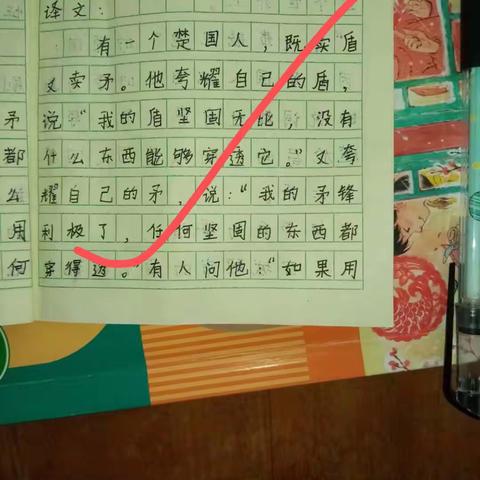 译文:
有一个楚国人,既卖盾
又卖矛。他夸耀自己的盾,
说“我的盾坚固无比,没有
什么东西能够穿透它。”又夸
耀自己的矛,说:“我的矛锋
利极了,任何坚固的东西都
穿得透。”有人问他:“如果用
矛
都
么
用
何